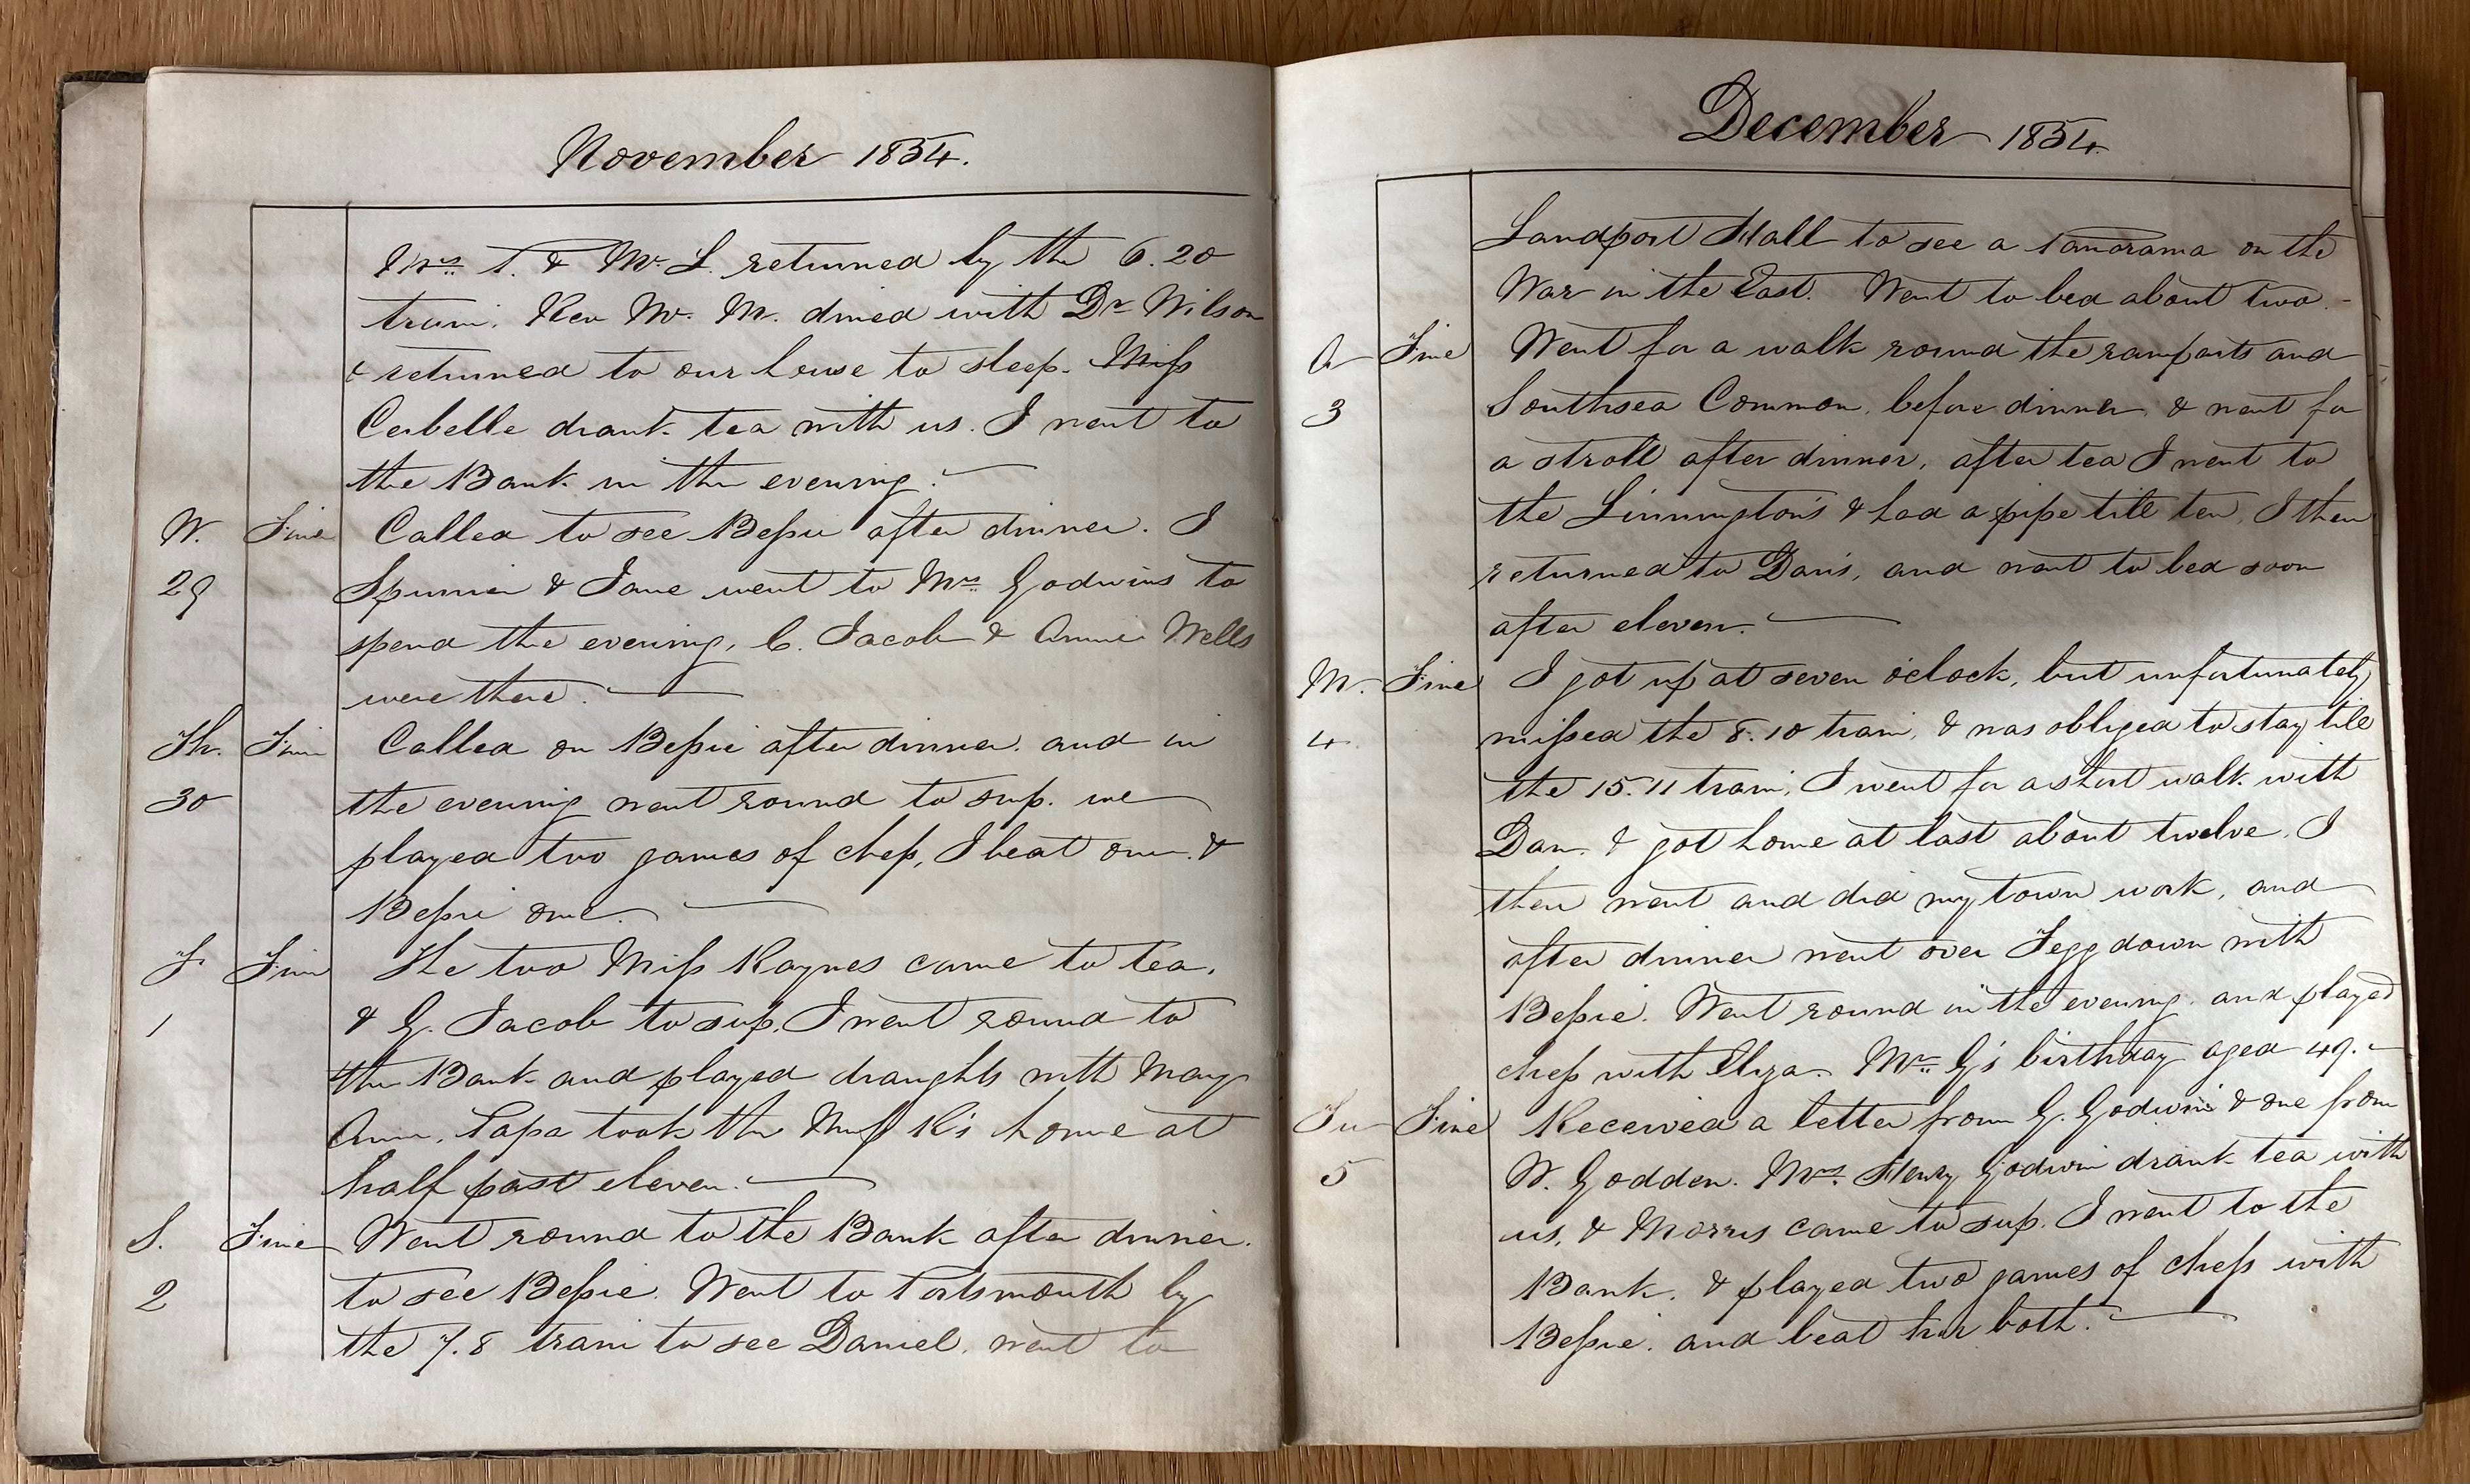 November 1854.
Mrs. T. & Mr. L. returned by the 6.20
train. Rev Mr. M. dined with Dr Wilson
& returned to our house to sleep. Miss
Cerbelle drank tea with us. I went to
the Bank in the evening.
W. Fine Called to see Bessie after dinner. I
29 & Jane went to Mrs. Godwins to
spend the evening, C. Jacob & Annie Wells
were there.
Th. Fine Called on Bessie after dinner. and in
30 the evening went round to sup. we
played two games of chess, I beat one. &
Bessie one.
F. Fine The two Miss Raynes came to tea.
1 & G. Jacob to sup. I went round to
the Bank and played draughts with Mary
Ann. Papa took the Miss R's home at
half past eleven.
S. Fine Went round to the Bank after dinner.
2 to see Bessie. Went to Portsmouth by
the 7.8 train to see Daniel. went to
December 1854.
Landport Hall to see a Panorama on the
War in the East. Went to bed about two.
Fine Went for a walk round the ramparts and
3 Southsea Common, before dinner, & went for
a stroll after dinner, after tea I went to
the Linnington's & had a pipe till ten, I then
returned to Dan's, and went to bed soon
after eleven.
M. Fine I got up at seven o'clock, but unfortunately
4 missed the 8.10 train, & was obliged to stay till
the 15.11 train, I went for a short walk with
Dan. & got home at last about twelve. I
then went and did my town work, and
after dinner went over Tegg down with
Bessie. Went round in the evening. and played
chess with Eliza. Mr. G's birthday aged 49.
Tu Fine Received a letter from G. Godwin & one from
5 W. Godden. Mrs. Henry Godwin drank tea with
us, & Morris came to sup. I went to the
Bank. & played two games of chess with
Bessie. and beat her both.